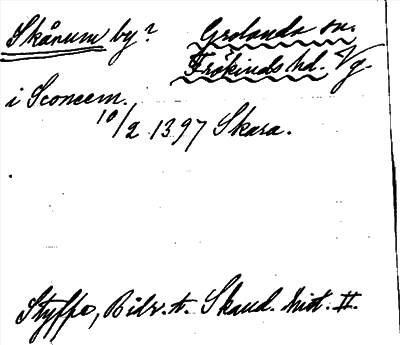 Skånum by? Grolanda sn.
Frökinds hd. Vg.
i Sconem.
10/2 1397 Skara.
Styffe, Bidr. t. Skand. hist. II.